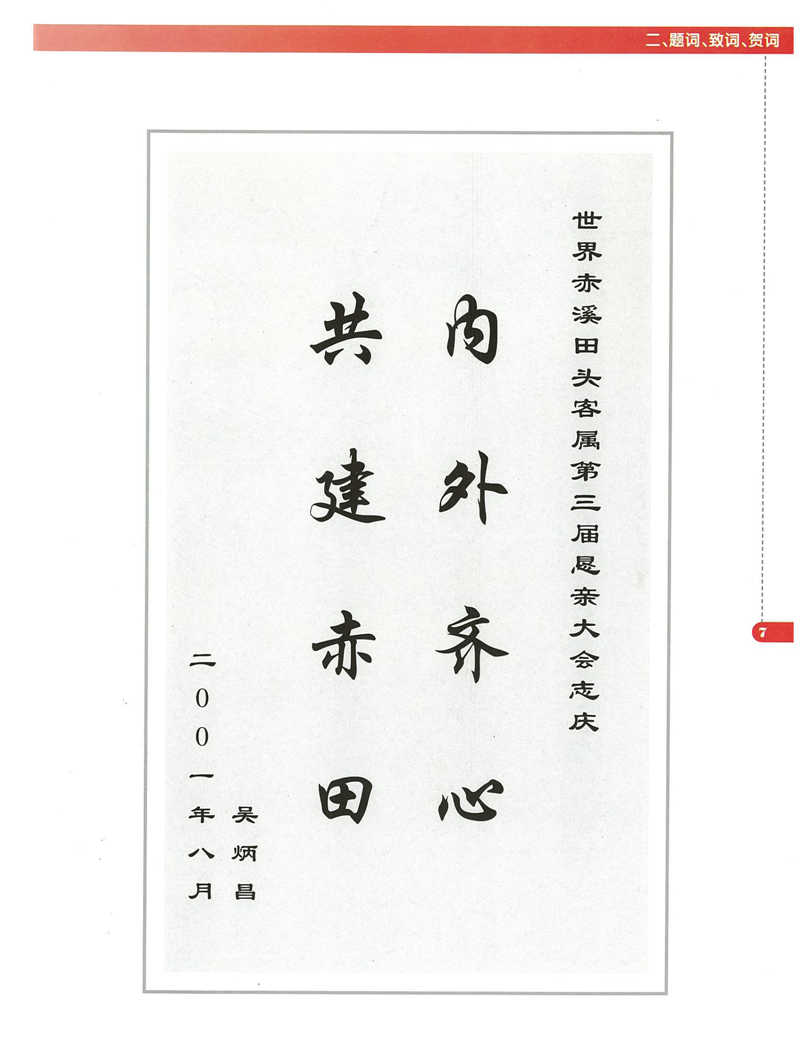 二、题词、致词、贺词
世界赤溪田头客属第三届恳亲大会志庆
内外齐心
共建赤田
吴炳昌
二00一年八月
7